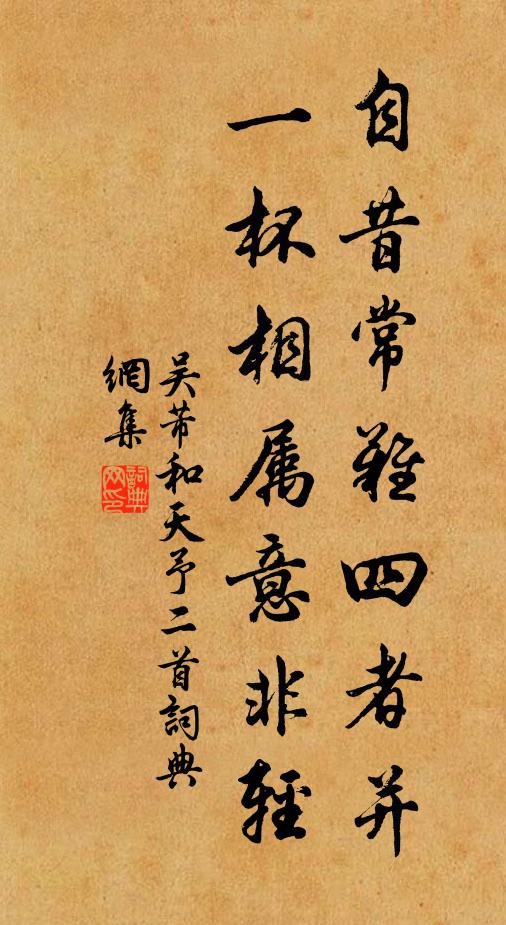 自昔常難四者并
一杯相属意非輕
吴芾和天予二首詞典
網集
詞典
网印